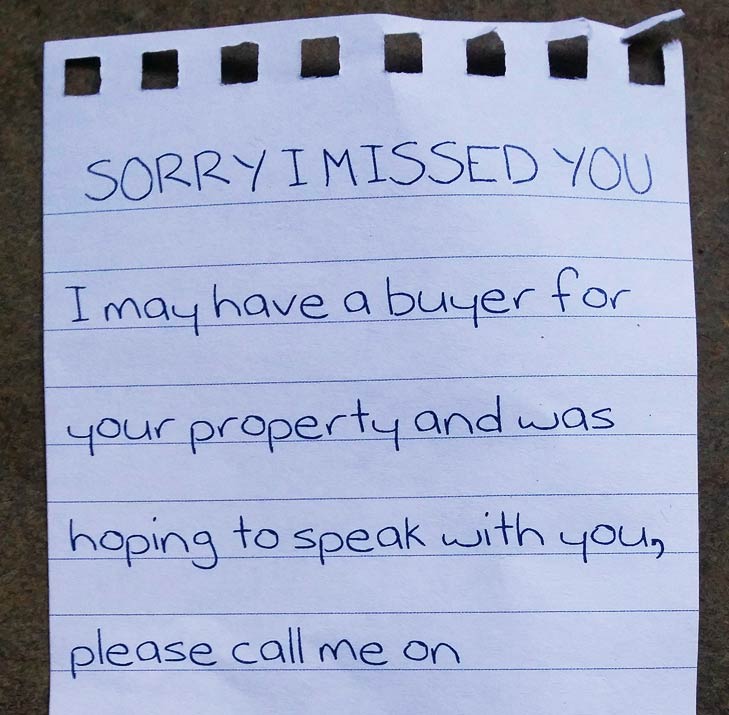 SORRY I MISSED YOU
I may have a buyer for
your property and was
hoping to speak with you,
please call me on